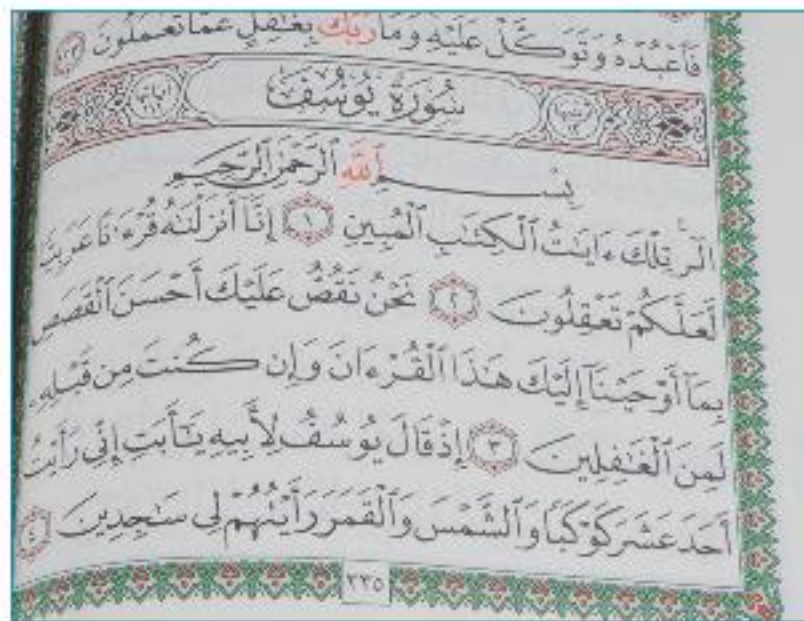 فَٱعۡبُدۡهُ وَتَوَكَّلۡ عَلَيۡهِۚ وَمَا رَبُّكَ بِغَٰفِلٍ عَمَّا تَعۡمَلُونَ ١٢٣
سُورَةُ يُوسُفَ
بِسۡمِ ٱللَّهِ ٱلرَّحۡمَٰنِ ٱلرَّحِيمِ
الٓرۚ تِلۡكَ ءَايَٰتُ ٱلۡكِتَٰبِ ٱلۡمُبِينِ ١ إِنَّآ أَنزَلۡنَٰهُ قُرۡءَٰنًا عَرَبِيّٗا
لَّعَلَّكُمۡ تَعۡقِلُونَ ٢ نَحۡنُ نَقُصُّ عَلَيۡكَ أَحۡسَنَ ٱلۡقَصَصِ
بِمَآ أَوۡحَيۡنَآ إِلَيۡكَ هَٰذَا ٱلۡقُرۡءَانَ وَإِن كُنتَ مِن قَبۡلِهِۦ
لَمِنَ ٱلۡغَٰفِلِينَ ٣ إِذۡ قَالَ يُوسُفُ لِأَبِيهِ يَٰٓأَبَتِ إِنِّي رَأَيۡتُ
أَحَدَ عَشَرَ كَوۡكَبٗا وَٱلشَّمۡسَ وَٱلۡقَمَرَ رَأَيۡتُهُمۡ لِي سَٰجِدِينَ ٤
٢٣٥